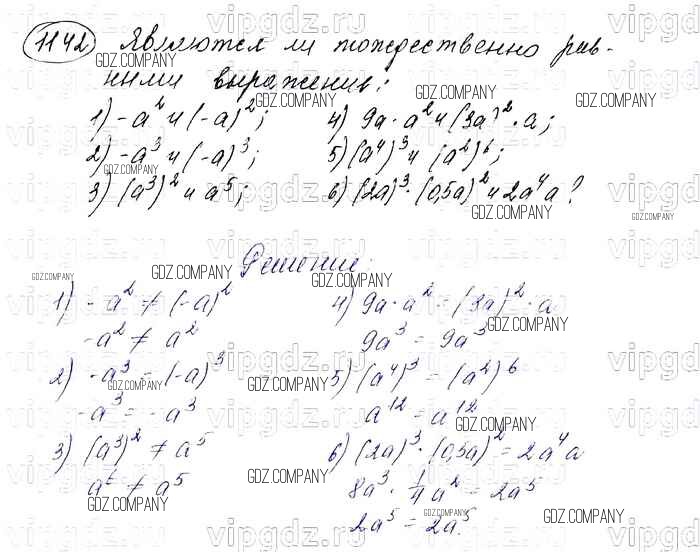 1142 Являются ли тождественно рав-
ными выражения:
1) -a² и (-a)²;
2) -a³ и (-a)³;
3) (a³)² и a⁵;
4) 9a · a² и (3a)² · a;
5) (a⁴)³ и (a²)⁶;
6) (2a)³ · (0,5a)² и 2a⁴a?
Решение.
1) -a² ≠ (-a)²
-a² ≠ a²
2) -a³ = (-a)³
-a³ = -a³
3) (a³)² ≠ a⁵
a⁶ ≠ a⁵
4) 9a · a² = (3a)² · a
9a³ = 9a³
5) (a⁴)³ = (a²)⁶
a¹² = a¹²
6) (2a)³ · (0,5a)² = 2a⁴a
8a³ · 1/4 a² = 2a⁵
2a⁵ = 2a⁵.